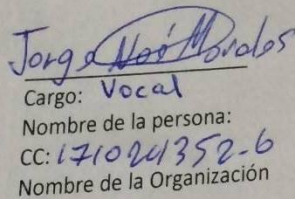 Jorge Noé Morales
Cargo: Vocal
Nombre de la persona:
CC: 171024352-6
Nombre de la Organización